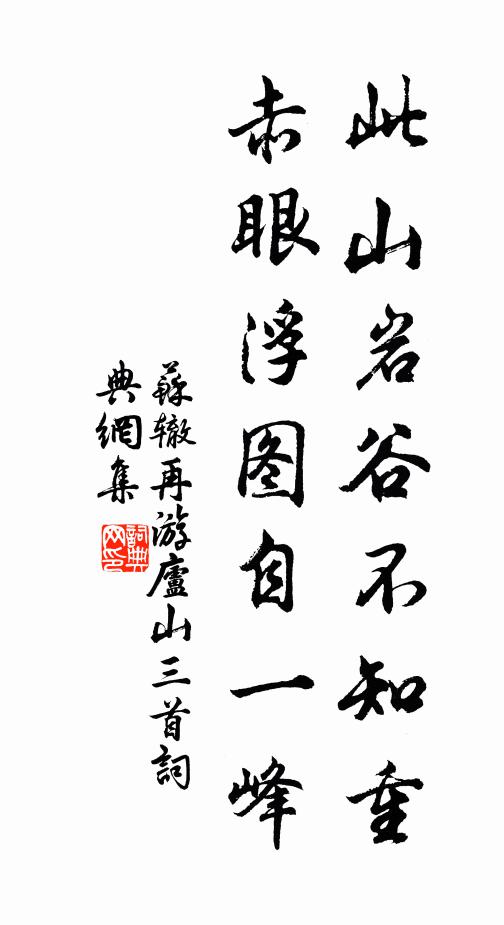 此山岩谷不知重
赤眼浮图自一峰
蘇辙再游廬山三首詞
典網集
詞典
网印